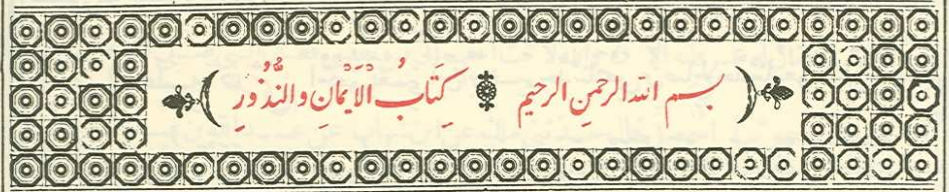 بسم الله الرحمن الرحيم كِتَابُ الاَيْمَانِ والنُّذُوْرِ